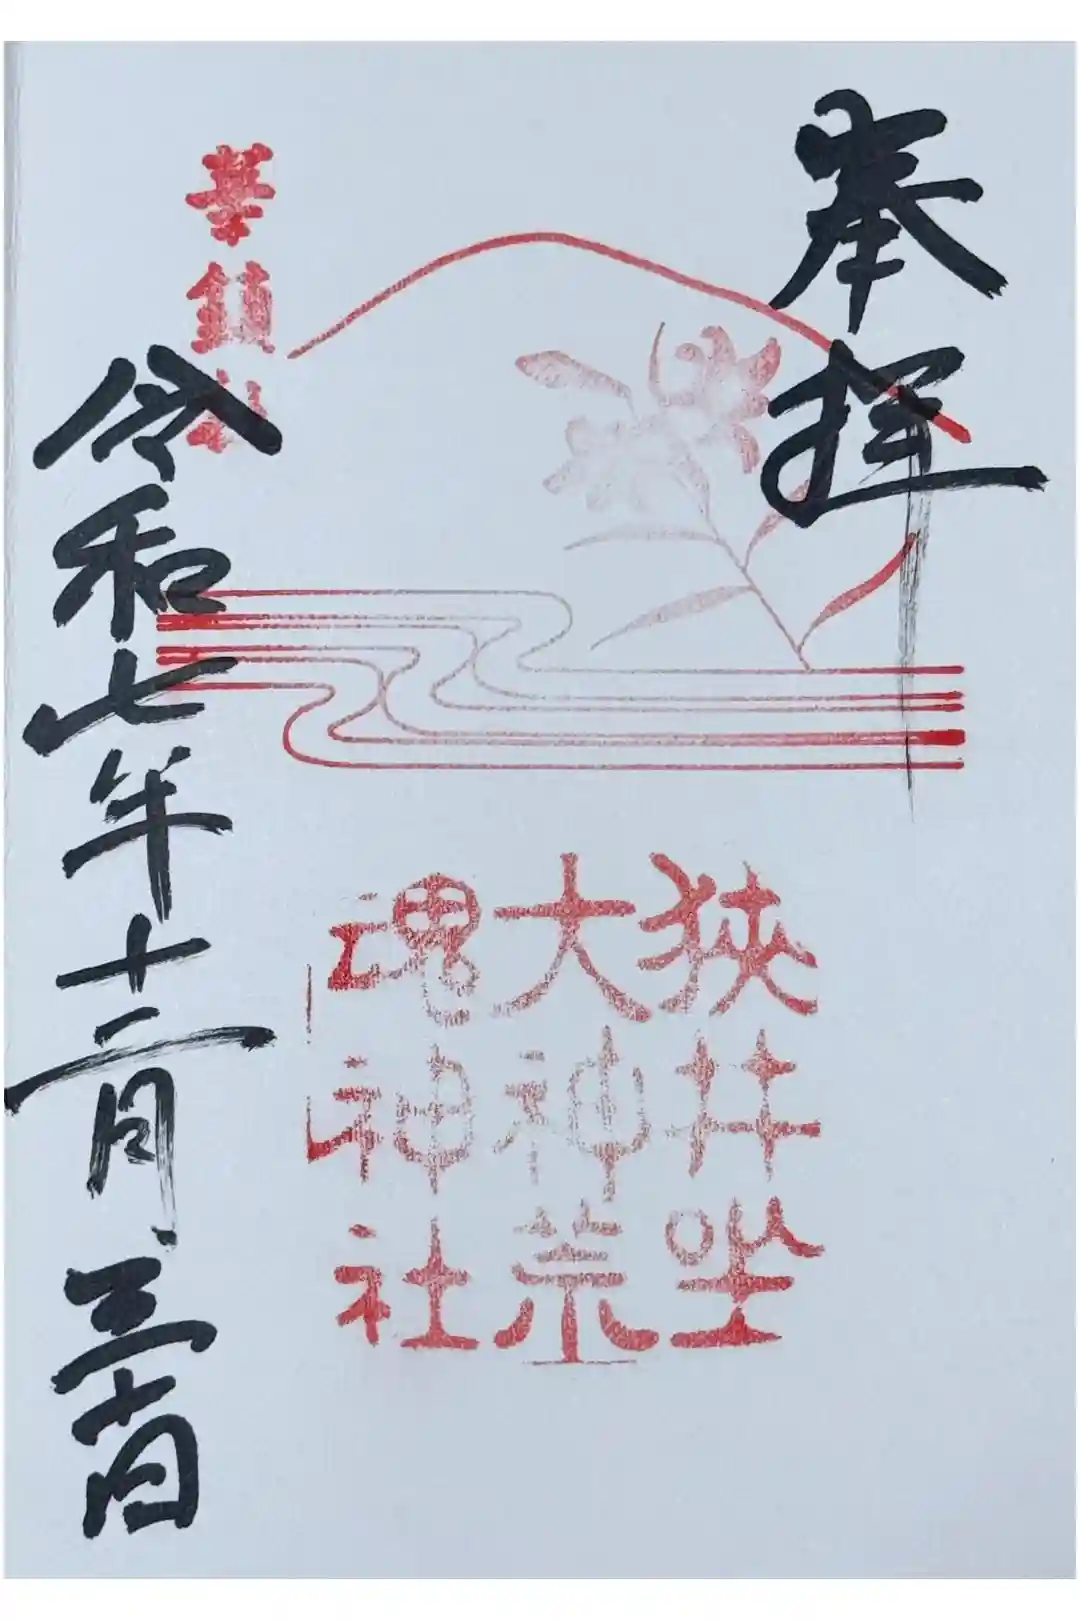 奉拝
狹井坐
大神荒
魂神社
華鎮
令和七年十二月三十日